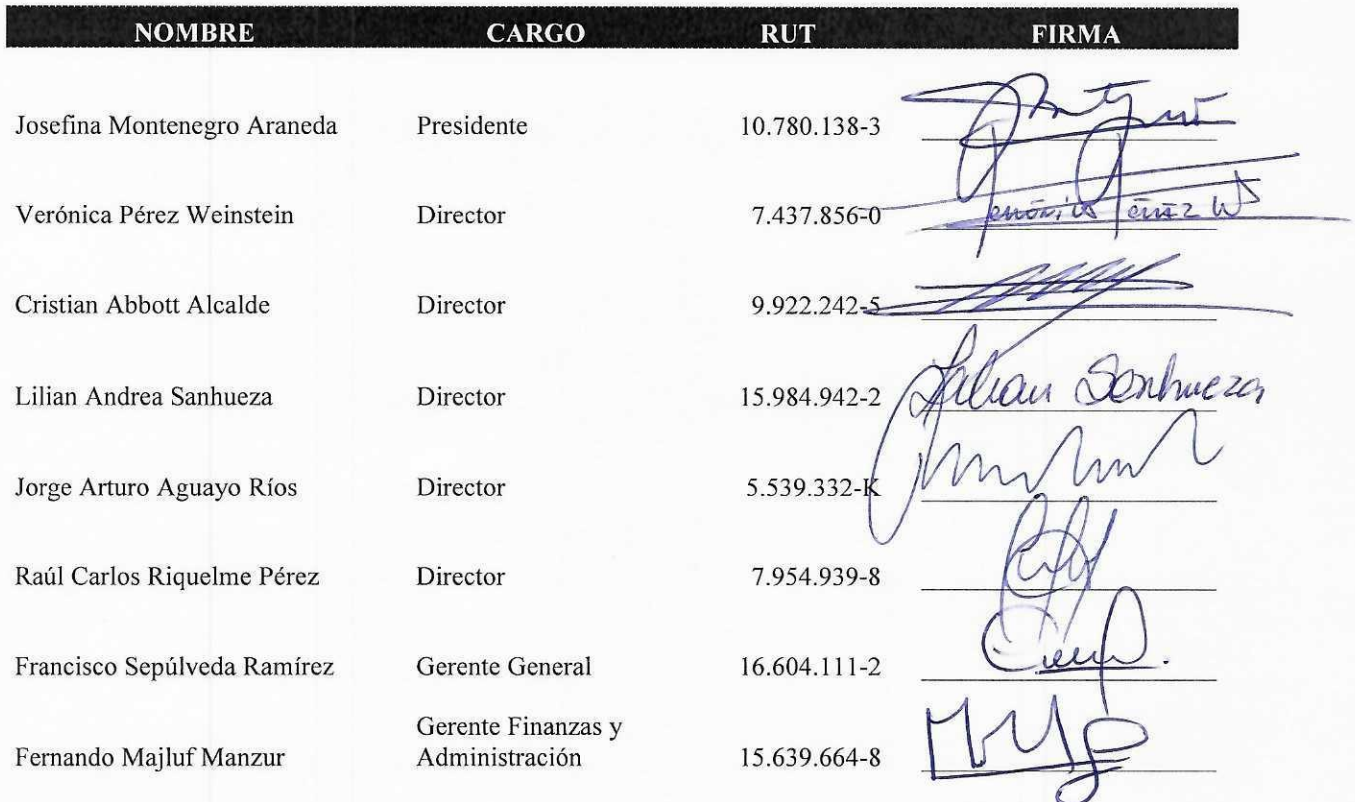 NOMBRE CARGO RUT FIRMA
Josefina Montenegro Araneda Presidente 10.780.138-3
Verónica Pérez Weinstein Director 7.437.856-0 Verónica Pérez W
Cristian Abbott Alcalde Director 9.922.242-5
Lilian Andrea Sanhueza Director 15.984.942-2 Lilian Sanhueza
Jorge Arturo Aguayo Ríos Director 5.539.332-K
Raúl Carlos Riquelme Pérez Director 7.954.939-8
Francisco Sepúlveda Ramírez Gerente General 16.604.111-2
Gerente Finanzas y
Fernando Majluf Manzur Administración 15.639.664-8